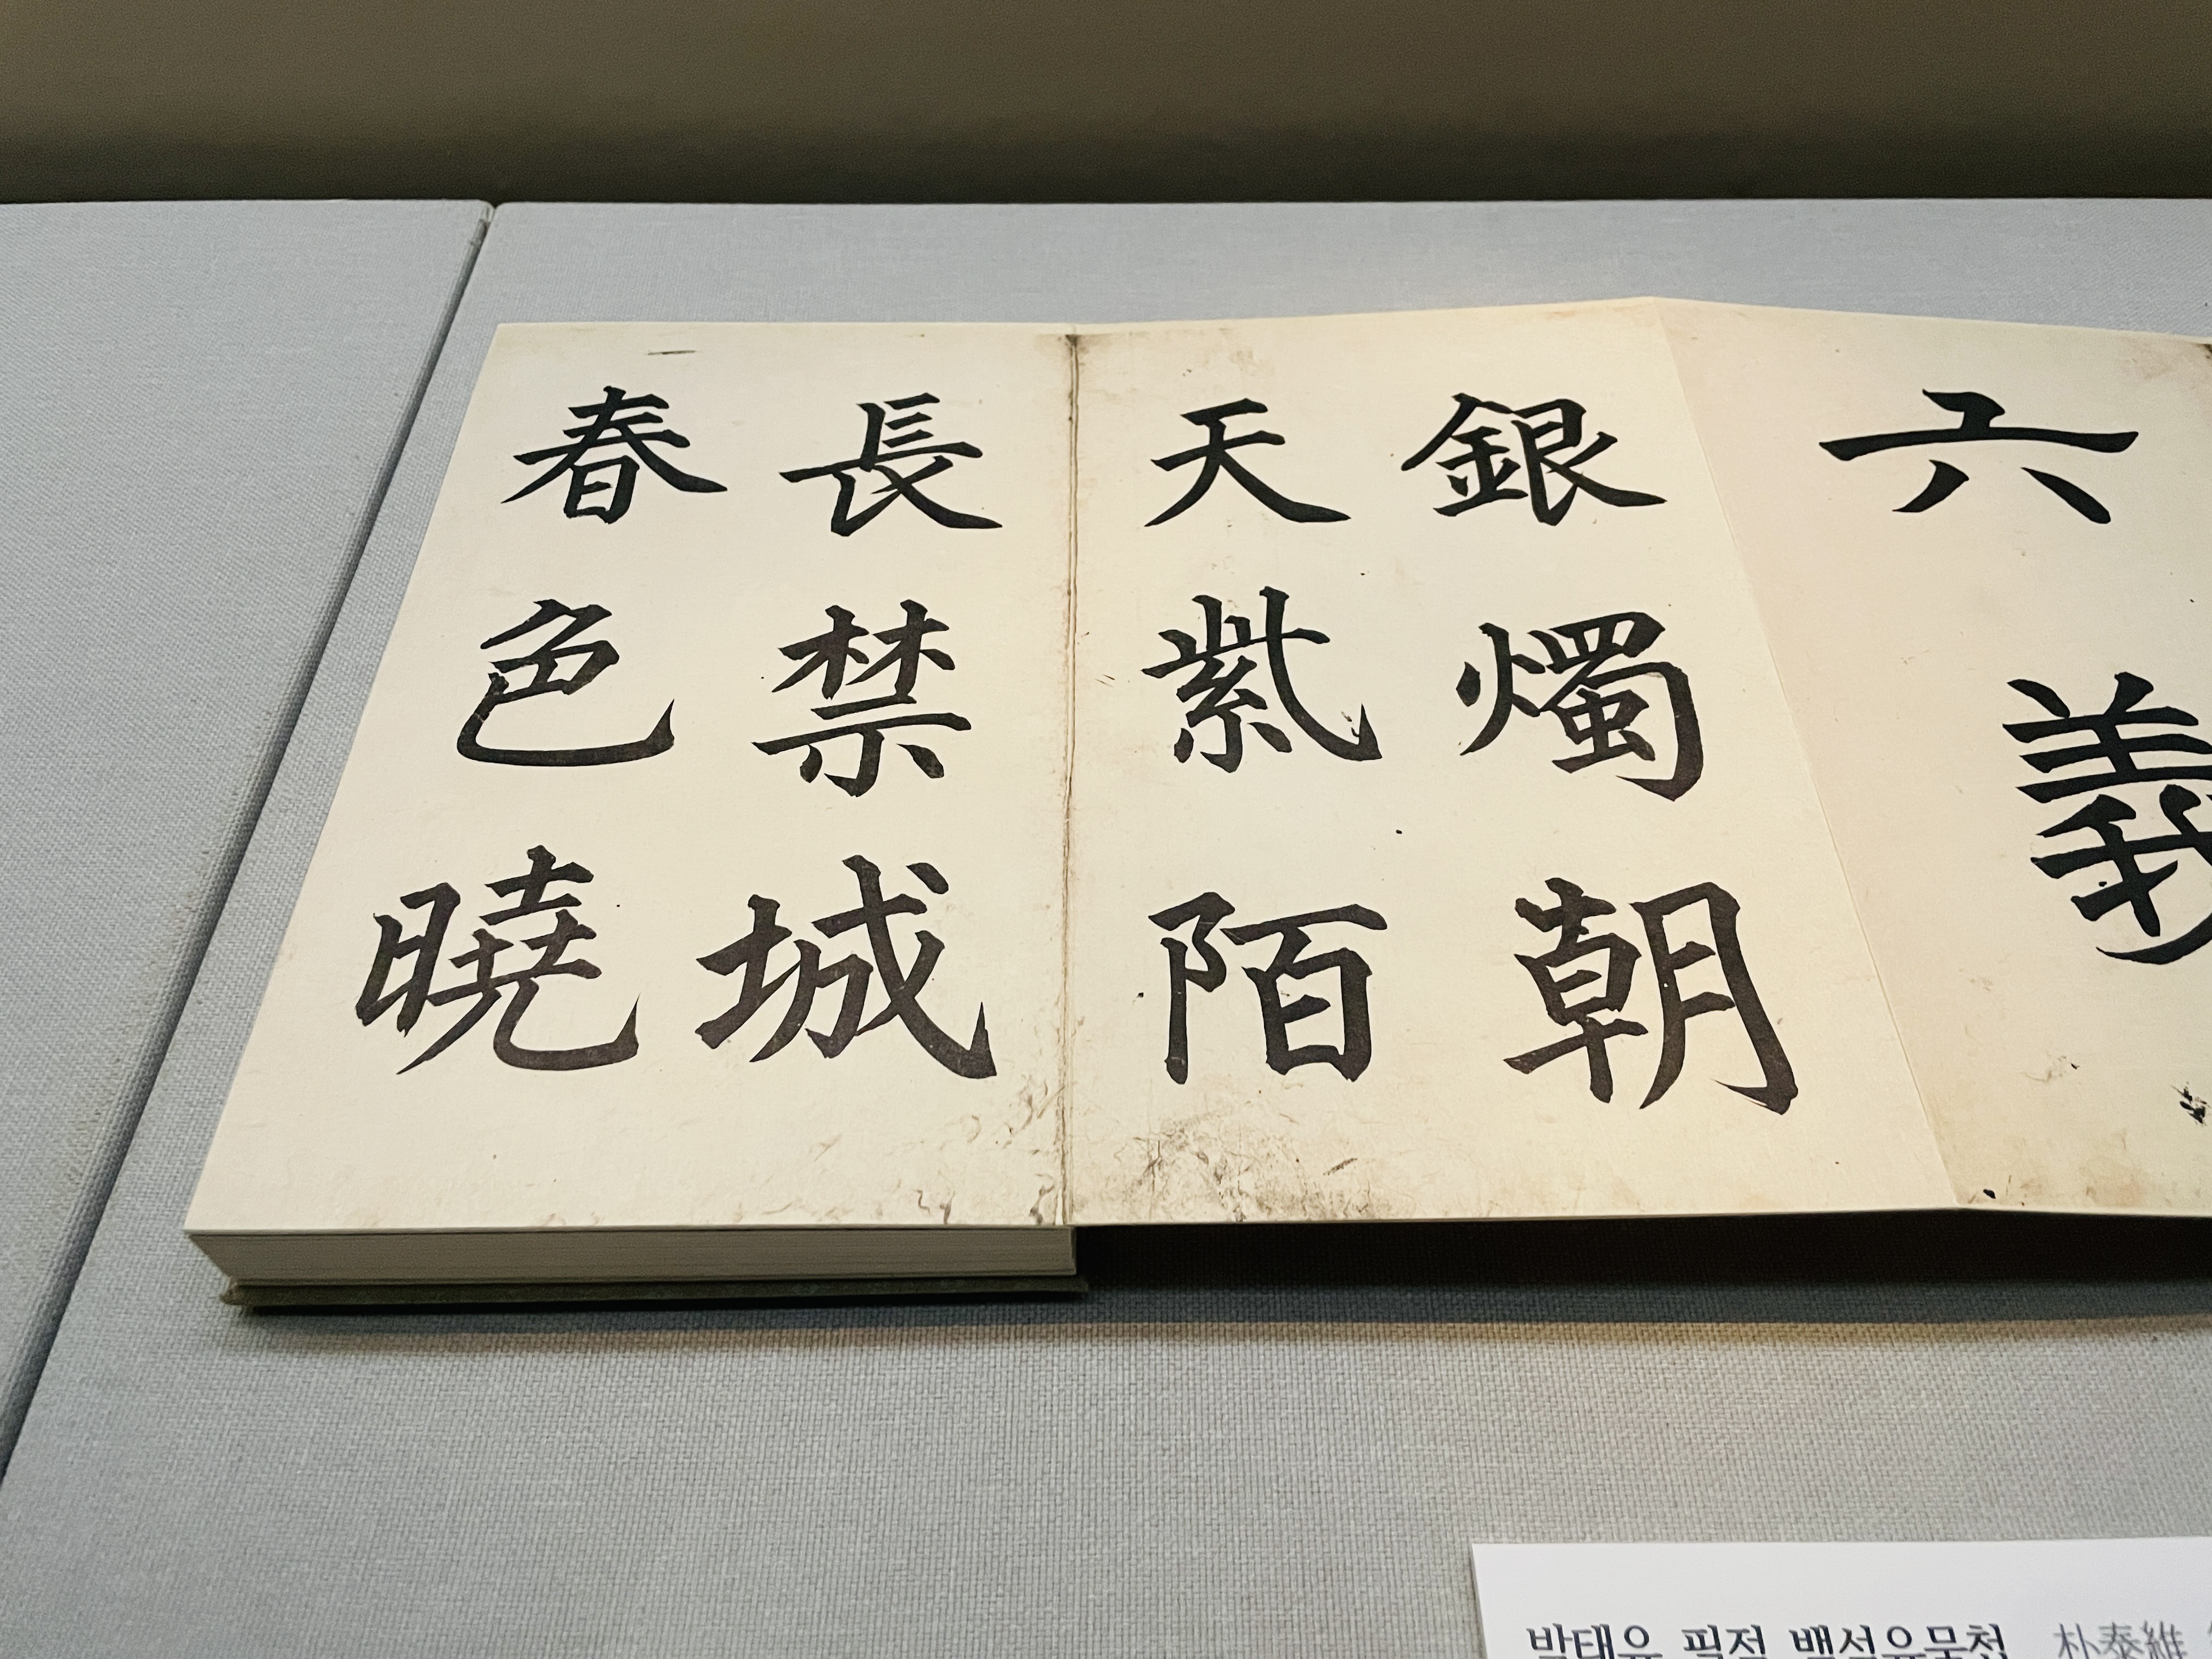 六義
銀燭朝
天紫陌
長禁城
春色曉
박태유 필적 백석유묵첩 朴泰維